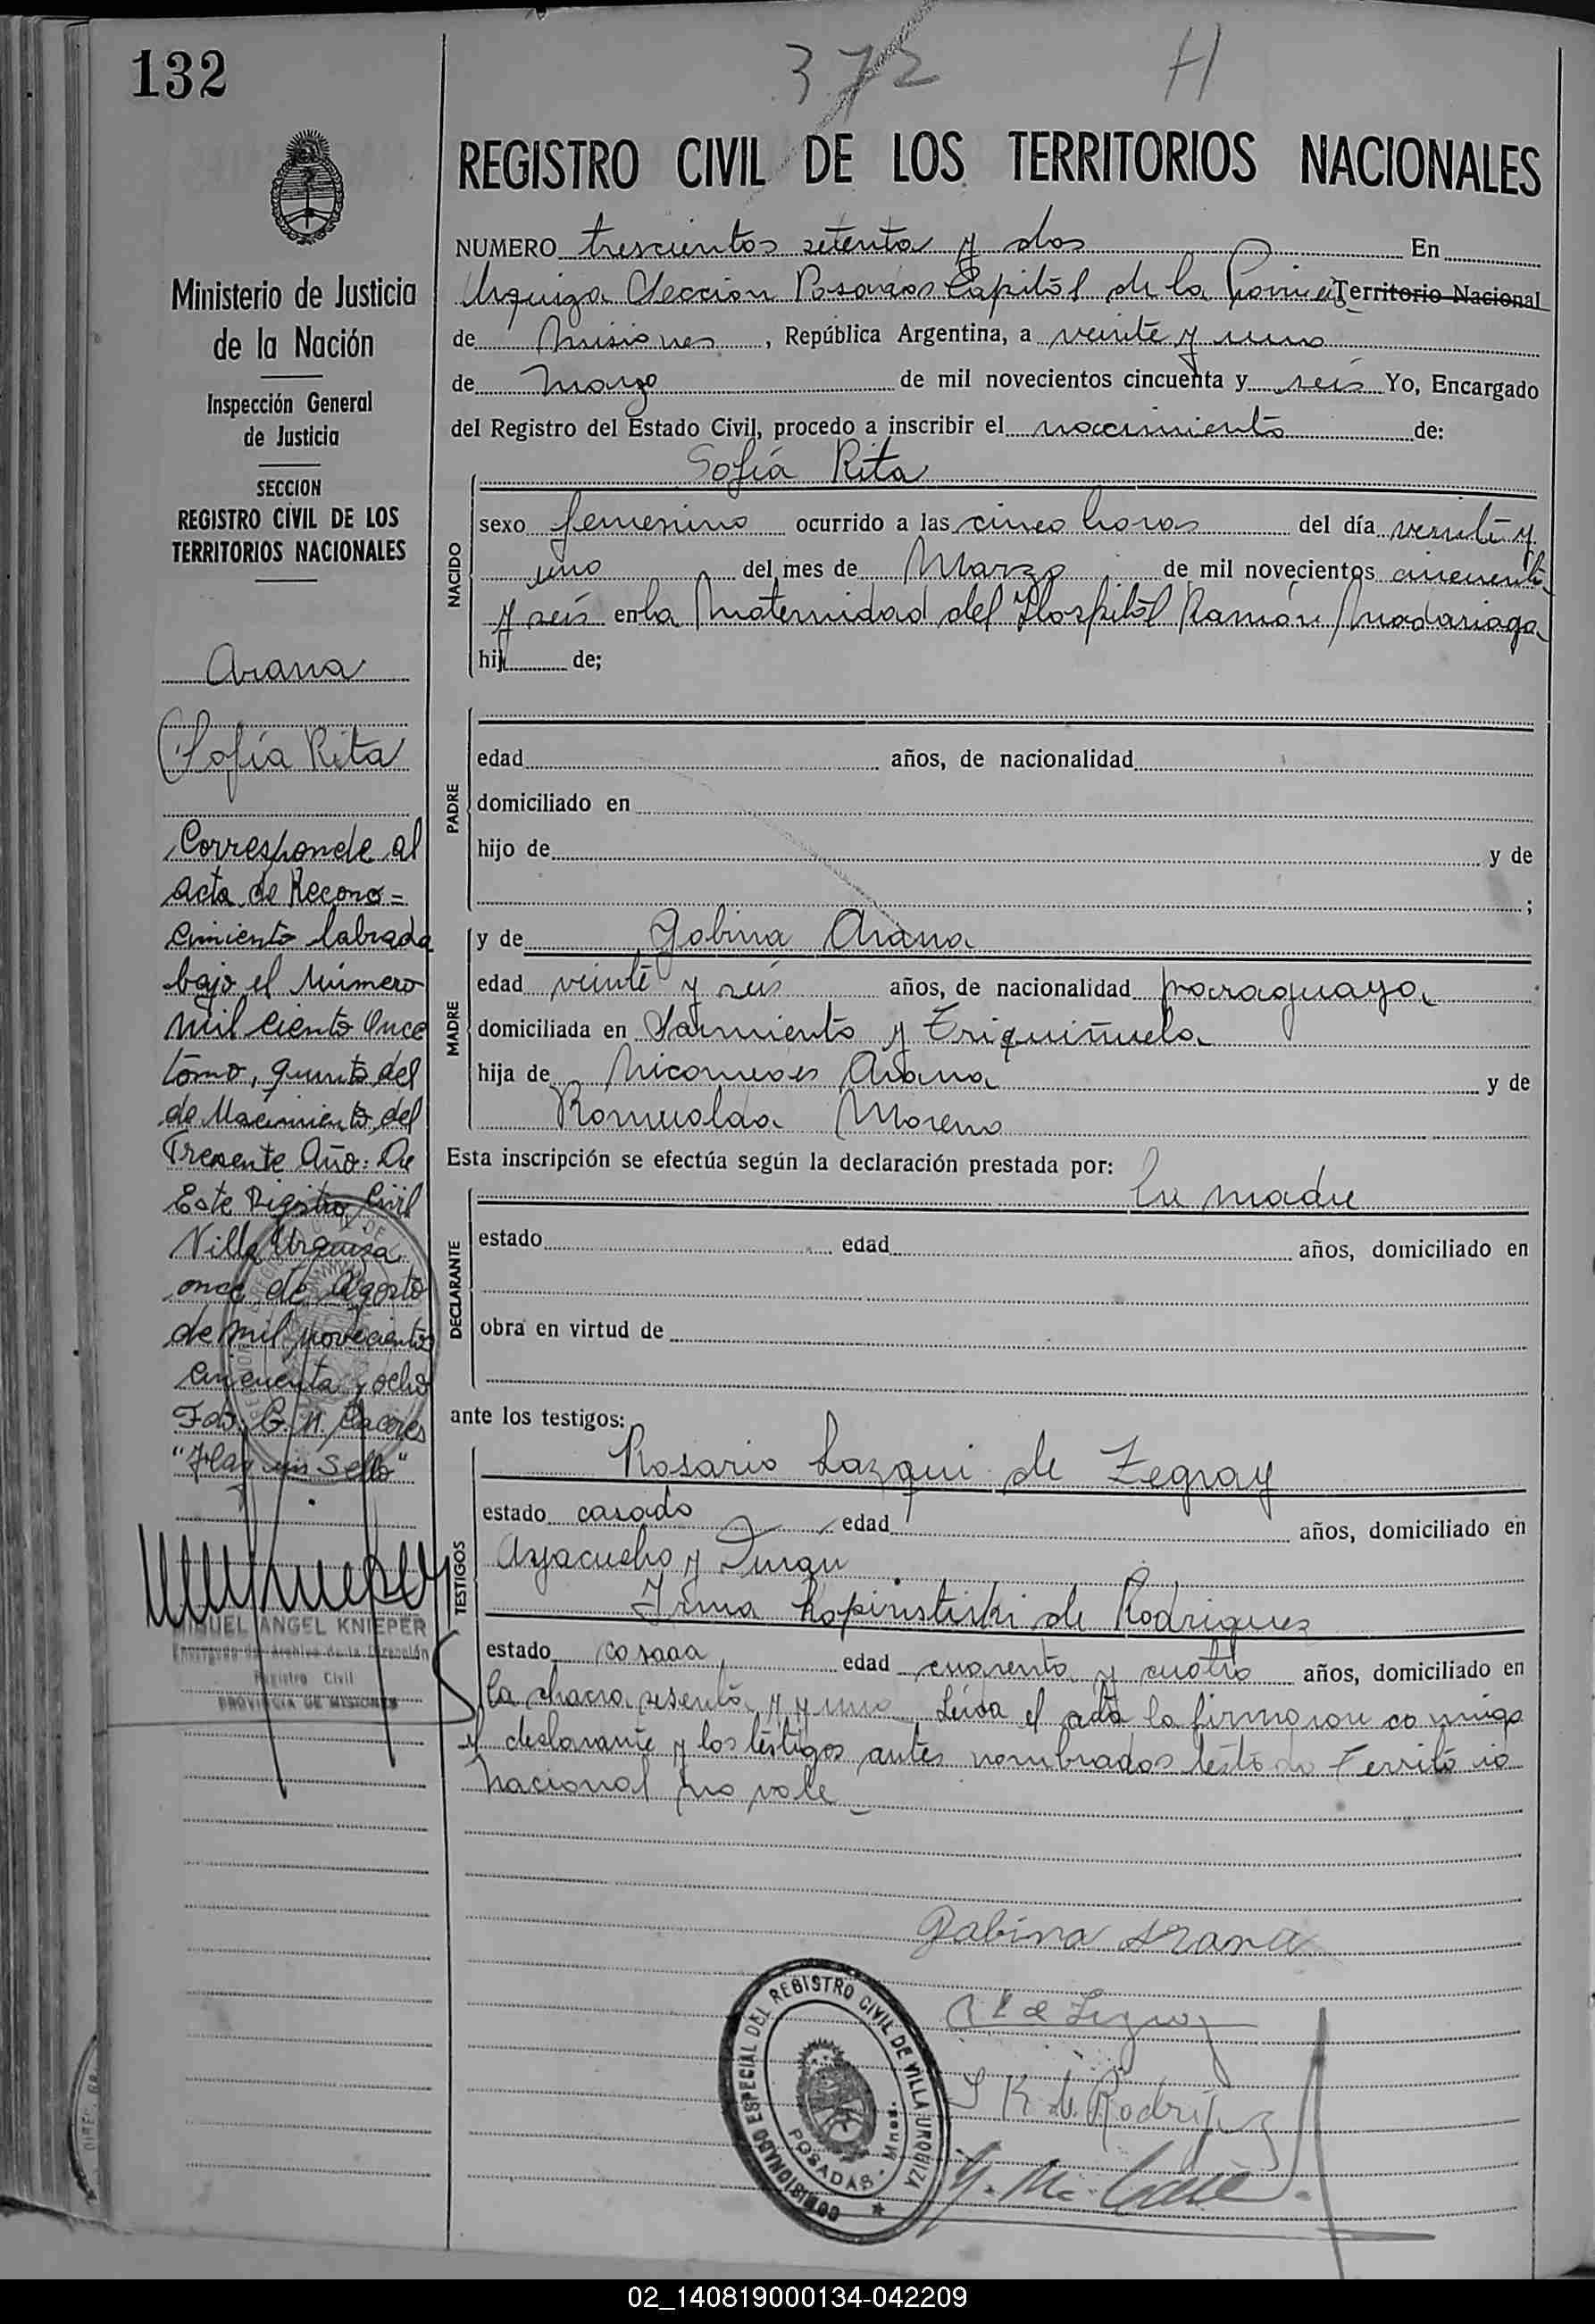 132
372 H
REGISTRO CIVIL DE LOS TERRITORIOS NACIONALES
NUMERO trescientos setenta y dos En
Urquiza Seccion Posadas Capital de la Territorio Nacional
de Misiones, República Argentina, a veinte y uno
de Marzo de mil novecientos cincuenta y seis Yo, Encargado
del Registro del Estado Civil, procedo a inscribir el nacimiento de:
Sofía Rita
NACIDO
sexo femenino ocurrido a las cinco horas del día veinte y
uno del mes de Marzo de mil novecientos cincuenta
y seis en la Maternidad del Hospital Ramón Madariaga
hij de;
PADRE
edad años, de nacionalidad
domiciliado en
hijo de y de
;
MADRE
y de Gabina Arana
edad veinte y seis años, de nacionalidad paraguaya
domiciliada en Sarmiento y Triquiñuela
hija de Nicomedes Arana y de
Romualda Moreno
Esta inscripción se efectúa según la declaración prestada por:
la madre
DECLARANTE
estado edad años, domiciliado en
obra en virtud de
ante los testigos:
TESTIGOS
Rosario Lazqui de Zegray
estado casado edad años, domiciliado en
Ayacucho y
Irma de Rodrigues
estado casada edad cuarenta y cuatro años, domiciliado en
la chacra sesenta y y uno Leida el acta la firmaron co migo
el declarante y los testigos antes nombrados testado Territorio
Nacional no vale
Gabina Arana
K de Rodriguez
COMISIONADO ESPECIAL DEL REGISTRO CIVIL DE VILLA URQUIZA
POSADAS. Mnes.
Ministerio de Justicia
de la Nación
Inspección General
de Justicia
SECCION
REGISTRO CIVIL DE LOS
TERRITORIOS NACIONALES
Arana
Sofía Rita
Corresponde al
acta de Recono=
cimiento labrada
bajo el Número
mil ciento once
tomo, quinto del
de Nacimiento del
Presente Año: De
Este Registro Civil
Villa Urquiza
once de Agosto
de mil novecientos
cincuenta y ocho
Fdo. G. M.
"Hay un sello"
MIGUEL ANGEL KNIEPER
Encargado del Archivo de la Dirección
Registro Civil
PROVINCIA DE MISIONES
02_140819000134-042209